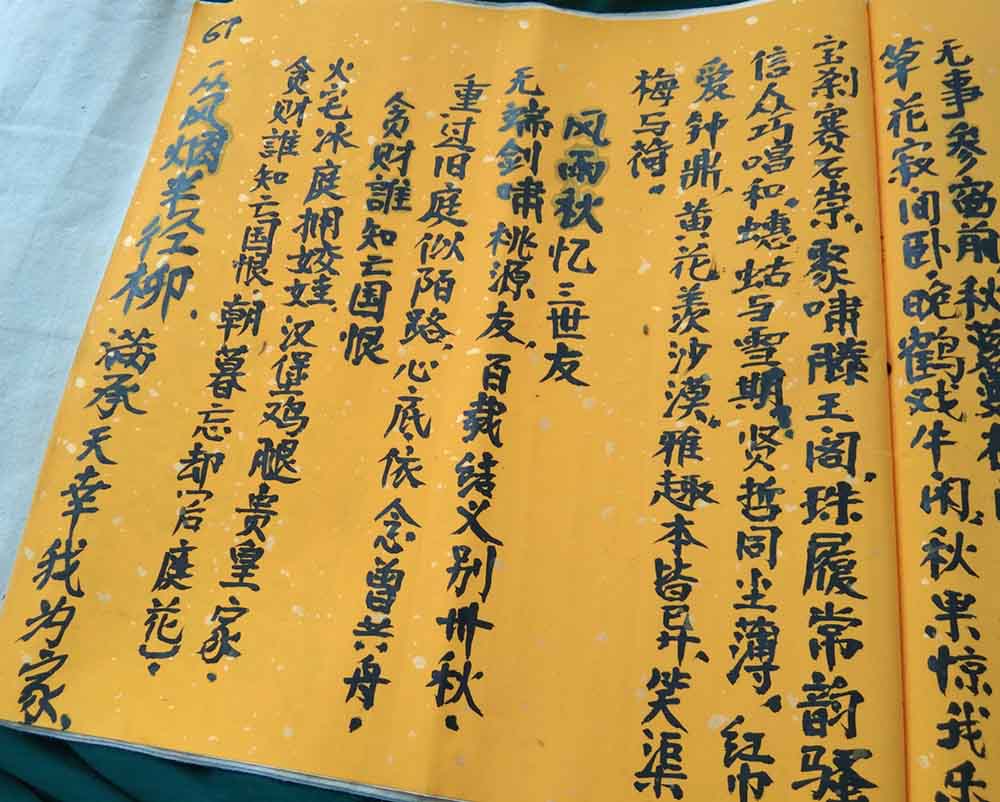 无事参窗前，秋
草花寂间卧，晚鹤戏牛闲，秋果惊我乐
宝刹赛石崇，聚啸滕王阁，珠履常韵骚
信众巧唱和，蟪蛄与雪期，贤哲同尘薄，红巾
爱钟鼎，黄花羡沙漠，雅趣本皆異，笑渠
梅与荷。
风雨秋忆三世友
无端剑啸桃源友，百载结义别卅秋。
重过旧庭似陌路，心底依念曾共舟。
贪财誰知亡国恨
火宅冰庭栅姣娃，汉堡鸡腿贵皇家。
贪财誰知亡国恨，朝暮忘却后庭花。
一笑风烟老红柳，满承天幸我为家，
67